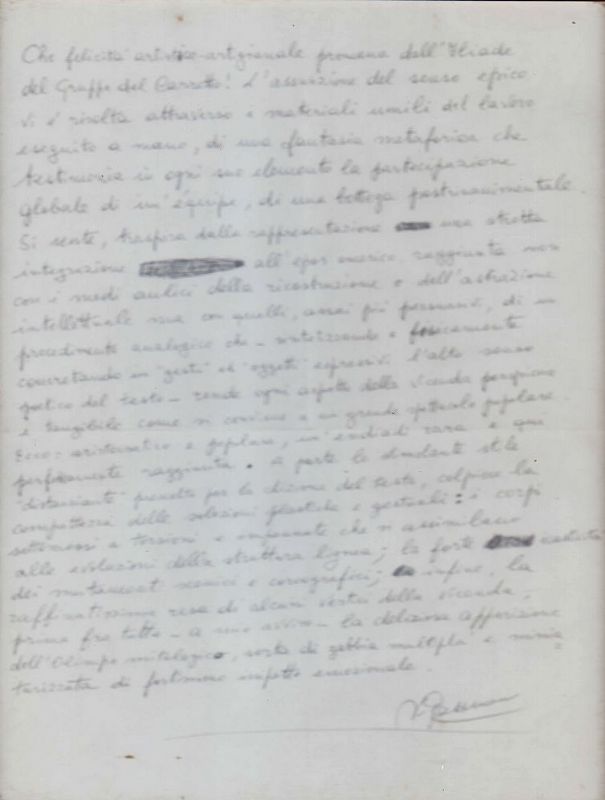 Che felicità artistico-artigianale promana dall'Iliade
del Gruppo del Carretto! L'assunzione del senso epico
vi è risolta attraverso i materiali umili del lavoro
eseguito a mano, di una fantasia metaforica che
testimonia in ogni suo elemento la partecipazione
globale di un'équipe, di una bottega postrinascimentale.
Si sente, traspira dalla rappresentazione una stretta
integrazione all'epos omerico, raggiunta non
con i modi aulici della ricostruzione o dell'astrazione
intellettuale ma con quelli, assai più persuasivi, di un
procedimento analogico che – sintetizzando e
concretando in "gesti" ed "oggetti" espressivi l'alto senso
poetico del testo – rende ogni aspetto della vicenda
e tangibile come si conviene a un grande spettacolo popolare.
Ecco: aristocratico e popolare, un'endiadi rara e qui
perfettamente raggiunta. A parte lo stile
"distanziante" prescelto per la dizione del testo, colpisce la
compattezza delle soluzioni plastiche e gestuali: i corpi
sottomessi a torsioni e che si assimilano
alle evoluzioni della struttura lignea; la forte
dei scenici e coreografici; infine, la
raffinatissima resa di alcuni vertici della vicenda,
prima fra tutte – a mio avviso – la deliziosa apparizione
dell'Olimpo mitologico, sorta di gabbia multipla e minia=
turizzata di fortissimo impatto emozionale.